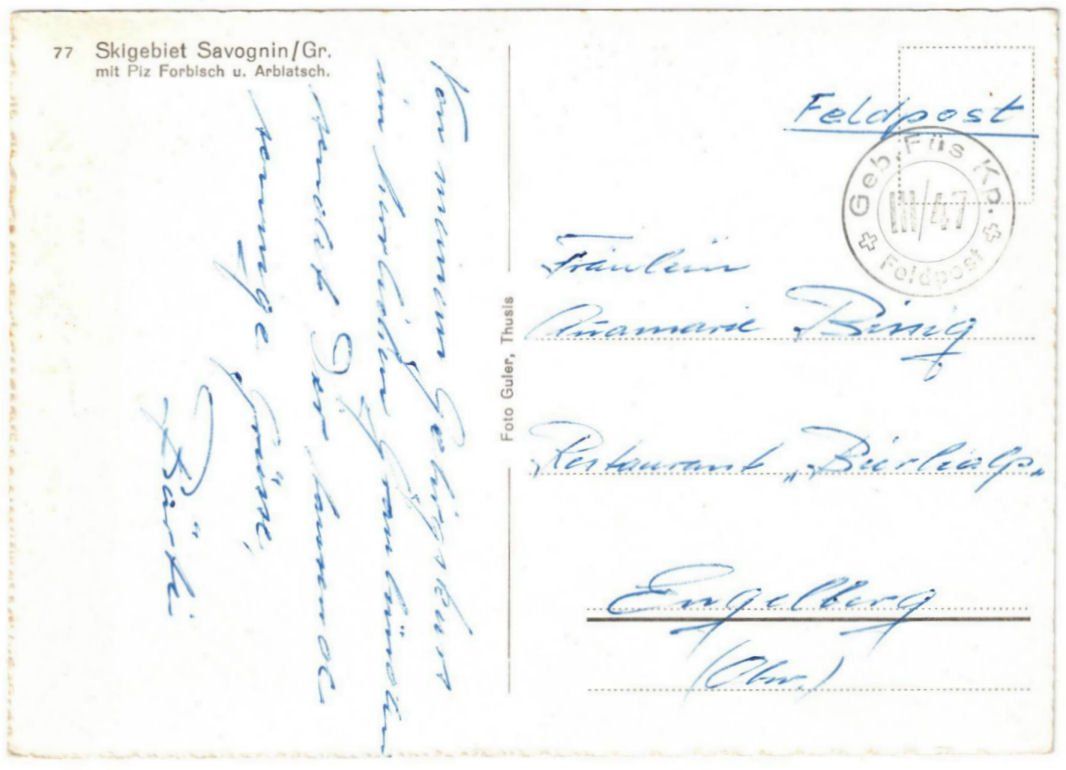 77 Skigebiet Savognin/Gr.
mit Piz Forbisch u. Arblatsch.
Von meinem Gebirgskurs
im herrlichen Graubünden
sendet Dir tausend
sonnige Grüsse,
Bärti
Foto Guler, Thusis
Feldpost
Geb. Füs Kp.
III/47
Feldpost
Fräulein
Annamarie Binig
Restaurant „Bierlialp"
Engelberg
(Obw.)